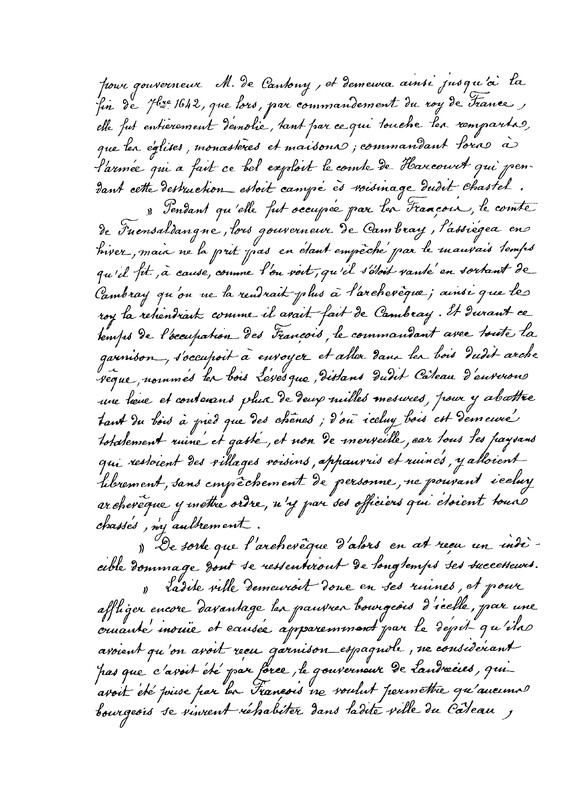 pour gouverneur M. de Cantony, et demeura ainsi jusqu'à la
fin de 7bre 1642, que lors, par commandement du roy de France,
elle fut entièrement démolie, tant par ce qui touche les remparts,
que les églises, monastères et maisons ; commandant lors à
l'armée qui a fait ce bel exploit le comte de Harcourt qui pen-
dant cette destruction estoit campé ès voisinage dudit chastel.
» Pendant qu'elle fut occupée par les François, le comte
de Fuensaldangne, lors gouverneur de Cambray, l'assiégea en
hiver, mais ne la prit pas en étant empêché par le mauvais temps
qu'il fit, à cause, comme l'on voit, qu'il s'étoit vanté en sortant de
Cambray qu'on ne la rendrait plus à l'archevêque ; ainsi que le
roy la retiendrait comme il avait fait de Cambray. Et durant ce
temps de l'occupation des François, le commandant avec toute la
garnison, s'occupoit à envoyer et aller dans les bois dudit arche
vêque, nommés les bois Lévesque, distans dudit Câteau d'environ
une lieue et contenans plus de deux milles mesures, pour y abattre
tant du bois à pied que des chênes ; d'où iceluy bois est demeuré
totalement ruiné et gasté, et non de merveille, car tous les paysans
qui restoient des villages voisins, appauvris et ruinés, y alloient
librement, sans empêchement de personne, ne pouvant iceluy
archevêque y mettre ordre, n'y par ses officiers qui étoient tous
chassés, n'y aultrement.
» De sorte que l'archevêque d'alors en at reçu un indi-
cible dommage dont se ressentiront de longtemps ses successeurs.
» Ladite ville demeuroit donc en ses ruines, et pour
affliger encore davantage les pauvres bourgeois d'icelle, par une
cruauté inouïe et causée apparemment par le dépit qu'ils
avoient qu'on avoit reçu garnison espagnole, ne considérant
pas que c'avoit été par force, le gouverneur de Landrecies, qui
avoit été prise par les François ne voulut permettre qu'aucuns
bourgeois se vinrent réhabiter dans ladite ville du Câteau,